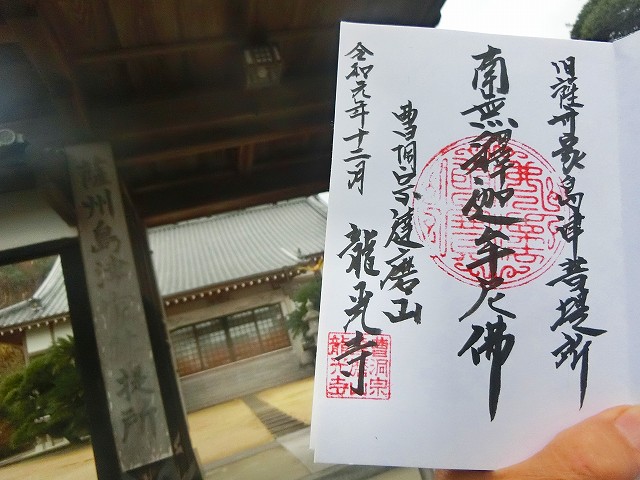 旧薩州家島津菩提所
南無釋迦牟尼佛
曹洞宗達磨山
龍光寺
令和元年十二月
曹洞宗
龍光寺
薩州島津
提所